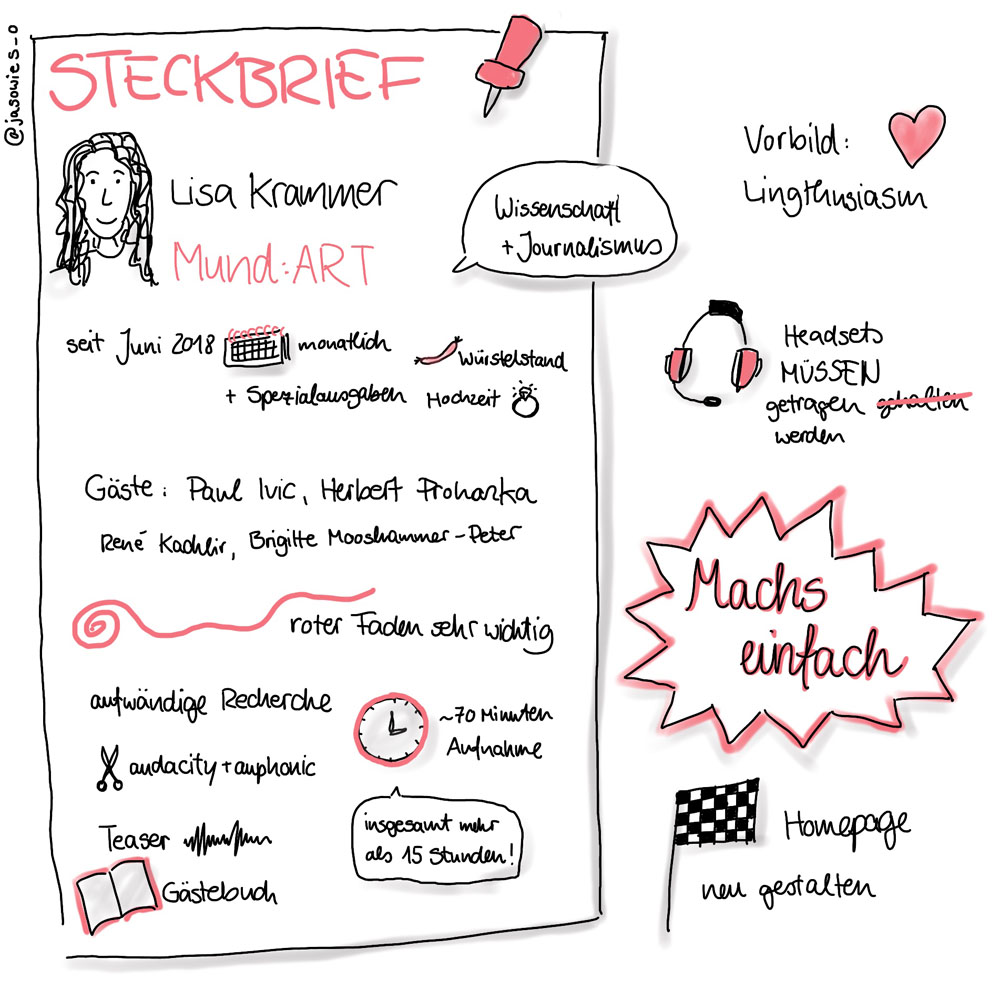 @jasowies_o
STECKBRIEF
Lisa Krammer
Mund:ART
Wissenschaft
+ Journalismus
seit Juni 2018
monatlich
+ Spezialausgaben
Würstelstand
Hochzeit
Gäste: Paul Ivic, Herbert Prohaska
René Kachlir, Brigitte Mooshammer-Peter
roter Faden sehr wichtig
aufwändige Recherche
~70 Minuten
Aufnahme
audacity + auphonic
insgesamt mehr
als 15 Stunden!
Teaser
Gästebuch
Vorbild:
Lingthusiasm
Headsets
MÜSSEN
getragen gehalten
werden
Machs
einfach
Homepage
neu gestalten